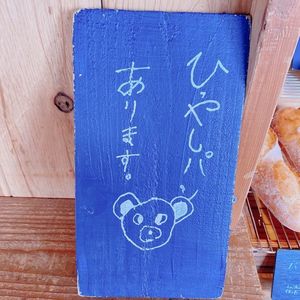 ひやしパン
あります。